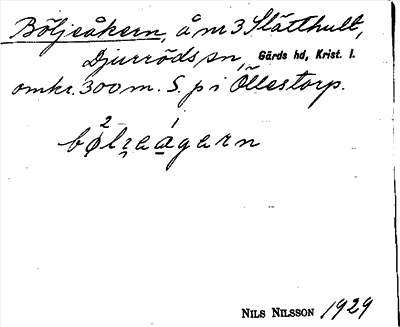 Böljeåkern, å nr 3 Slätthult,
Djurröds sn, Gärds hd, Krist. l.
omkr. 300 m. S. p i Ollestorp.
2 1
bølꞩeaagarn
NILS NILSSON 1929